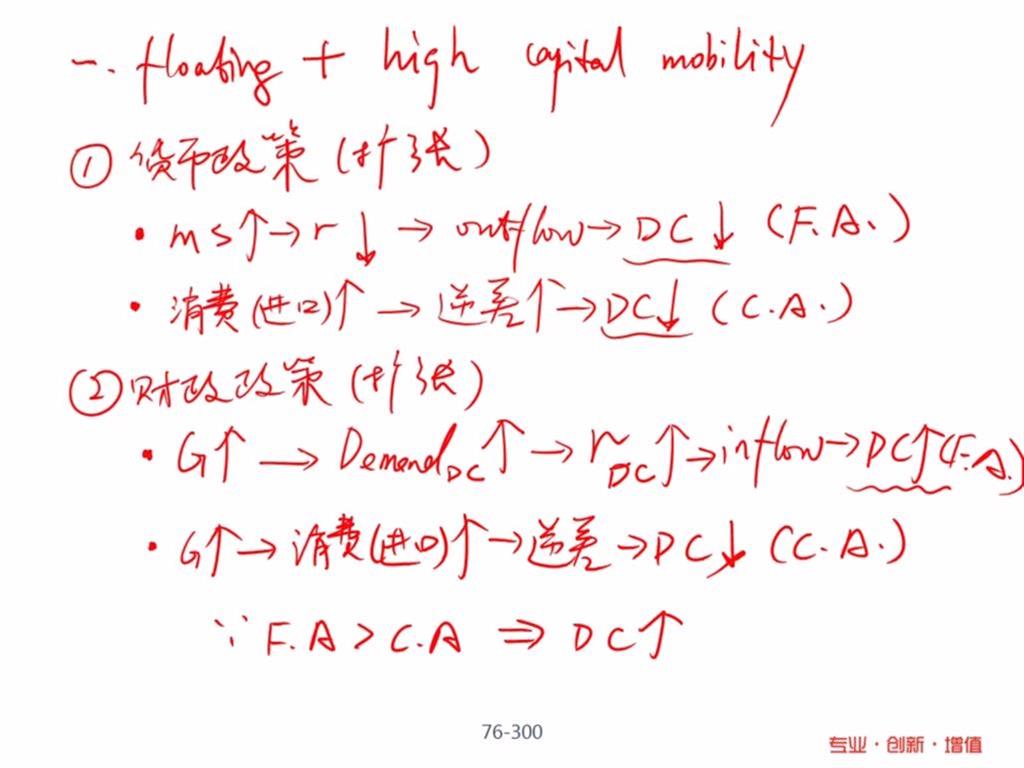 一. floating + high capital mobility
① 货币政策 (扩张)
• ms↑→r↓→ outflow→DC↓ (F.A.)
• 消费(进口)↑→逆差↑→DC↓ (C.A.)
② 财政政策 (扩张)
• G↑→Demand_DC↑→r_DC↑→inflow→DC↑(F.A.)
• G↑→消费(进口)↑→逆差→DC↓ (C.A.)
∵ F.A > C.A ⇒ DC↑
76-300
专业·创新·增值